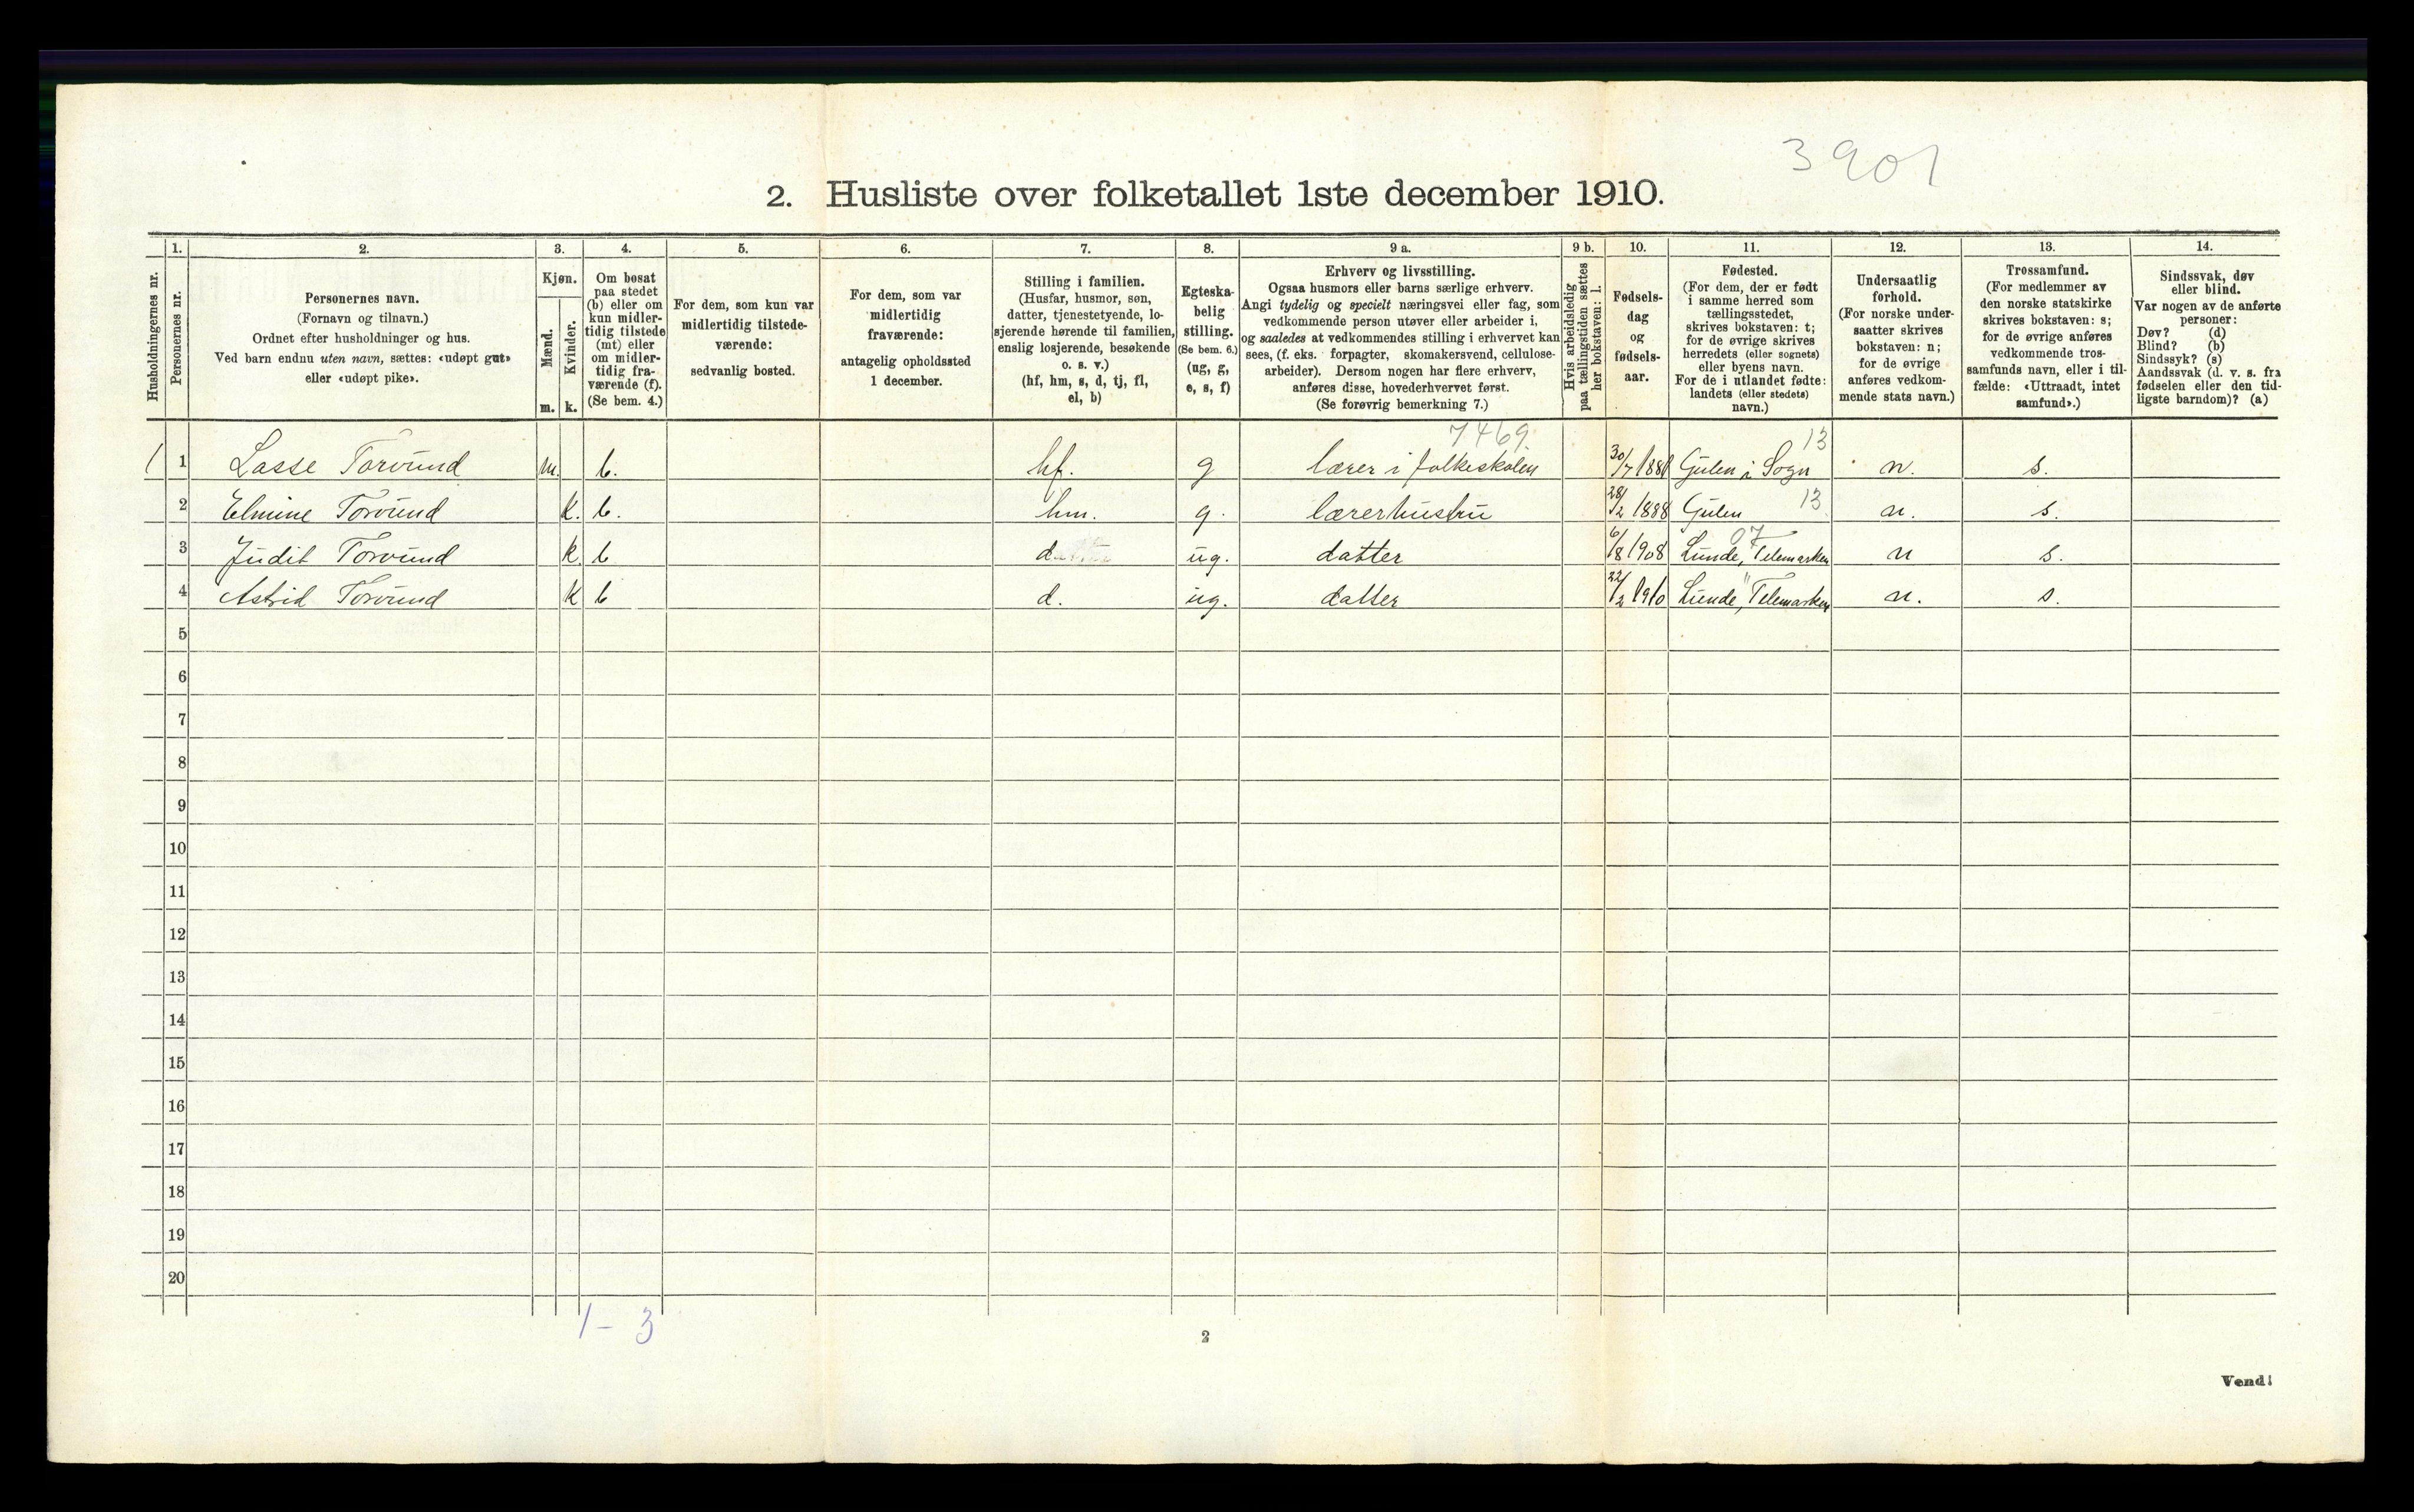 3901
2. Husliste over folketallet 1ste december 1910.
Husholdningernes nr.
1.
Personernes nr.
2.
Personernes navn.
(Fornavn og tilnavn.)
Ordnet efter husholdninger og hus.
Ved barn endnu uten navn, sættes: «udøpt gut»
eller «udøpt pike».
3.
Kjøn.
Mænd.
m.
Kvinder.
k.
4.
Om bosat
paa stedet
(b) eller om
kun midler-
tidig tilstede
(mt) eller
om midler-
tidig fra-
værende (f).
(Se bem. 4.)
5.
For dem, som kun var
midlertidig tilstede-
værende:
sedvanlig bosted.
6.
For dem, som var
midlertidig
fraværende:
antagelig opholdssted
1 december.
7.
Stilling i familien.
(Husfar, husmor, søn,
datter, tjenestetyende, lo-
sjerende hørende til familien,
enslig losjerende, besøkende
o. s. v.)
(hf, hm, s, d, tj, fl,
el, b)
8.
Egteska-
belig
stilling.
(Se bem. 6.)
(ug, g,
e, s, f)
9 a.
Erhverv og livsstilling.
Ogsaa husmors eller barns særlige erhverv.
Angi tydelig og specielt næringsvei eller fag, som
vedkommende person utøver eller arbeider i,
og saaledes at vedkommendes stilling i erhvervet kan
sees, (f. eks. forpagter, skomakersvend, cellulose-
arbeider). Dersom nogen har flere erhverv,
anføres disse, hovederhvervet først.
(Se forøvrig bemerkning 7.)
9 b.
Hvis arbeidsledig
paa tællingstiden sættes
her bokstaven: l.
10.
Fødsels-
dag
og
fødsels-
aar.
11.
Fødested.
(For dem, der er født
i samme herred som
tællingsstedet,
skrives bokstaven: t;
for de øvrige skrives
herredets (eller sognets)
eller byens navn.
For de i utlandet fødte:
landets (eller stedets)
navn.)
12.
Undersaatlig
forhold.
(For norske under-
saatter skrives
bokstaven: n;
for de øvrige
anføres vedkom-
mende stats navn.)
13.
Trossamfund.
(For medlemmer av
den norske statskirke
skrives bokstaven: s;
for de øvrige anføres
vedkommende tros-
samfunds navn, eller i til-
fælde: «Uttraadt, intet
samfund».)
14.
Sindssvak, døv
eller blind.
Var nogen av de anførte
personer:
Døv? (d)
Blind? (b)
Sindssyk? (s)
Aandssvak (d. v. s. fra
fødselen eller den tid-
ligste barndom)? (a)
7469. 13
1 1 Lasse Torvund m. b. hf. g lærer i folkeskolen 30/7 1881 Gulen i Sogn n. s.
2 Elmine Torvund k. b. hm. g. lærerhustru 28/2 1888 Gulen 13. n. s.
07
3 Judit Torvund k. b d ug. datter 6/8 1908 Lunde, Telemarken n s.
4 Astrid Torvund k b d. ug. datter 22/2 1910 Lunde, Telemarken n. s.
5
6
7
8
9
10
11
12
13
14
15
16
17
18
19
20
1 - 3
2
Vend!